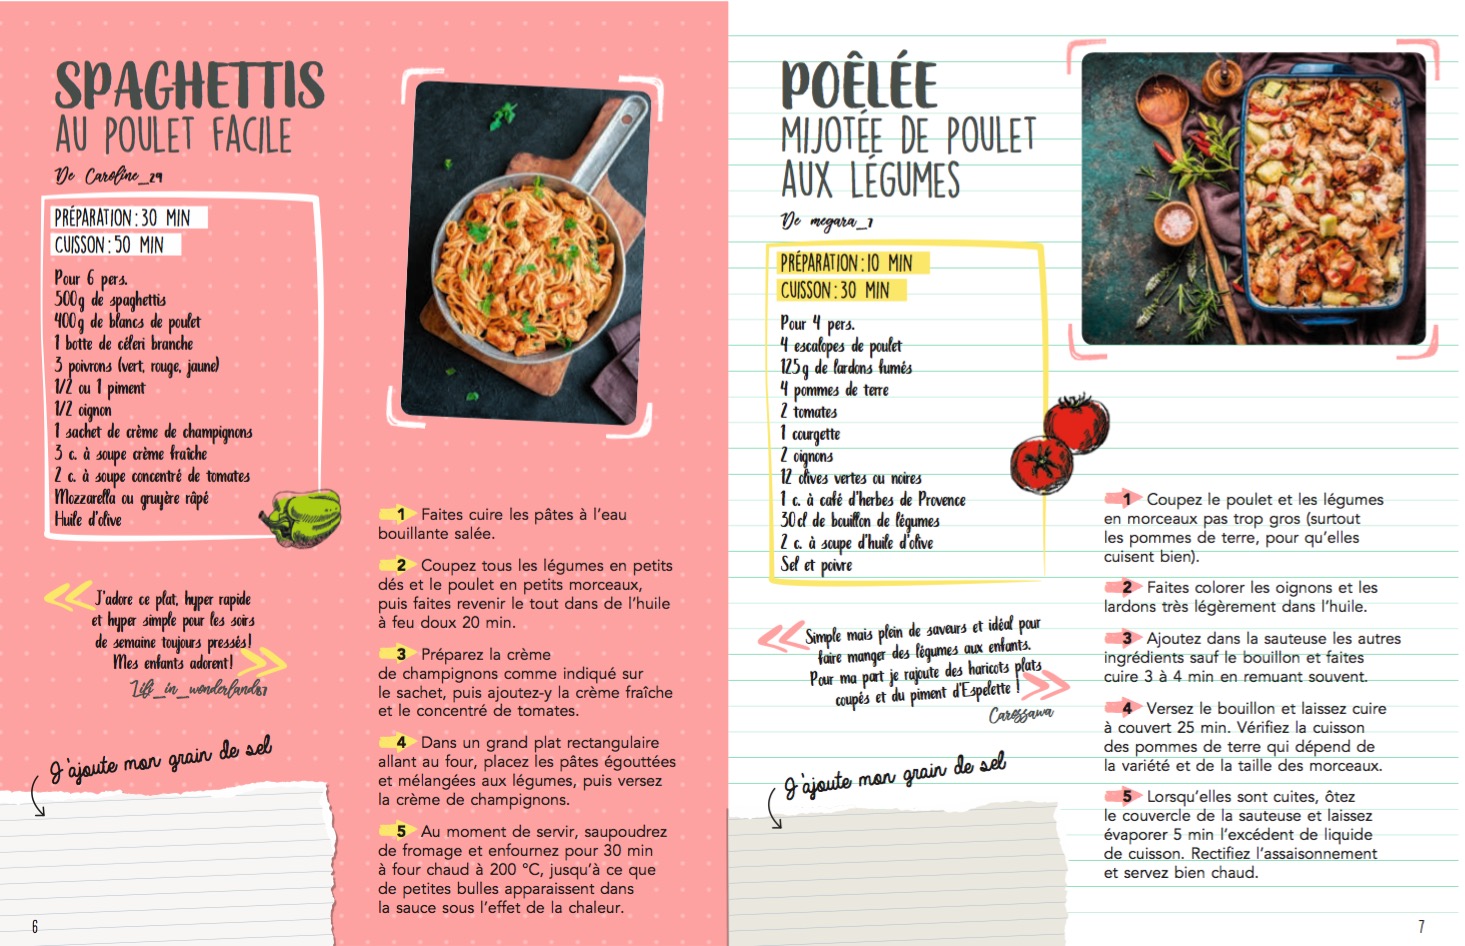 SPAGHETTIS
AU POULET FACILE
De Caroline_29
PRÉPARATION : 30 MIN
CUISSON : 50 MIN
Pour 6 pers.
500 g de spaghettis
400 g de blancs de poulet
1 botte de céleri branche
3 poivrons (vert, rouge, jaune)
1/2 ou 1 piment
1/2 oignon
1 sachet de crème de champignons
3 c. à soupe crème fraîche
2 c. à soupe concentré de tomates
Mozzarella ou gruyère râpé
Huile d'olive
J'adore ce plat, hyper rapide
et hyper simple pour les soirs
de semaine toujours pressés !
Mes enfants adorent !
Lili_in_wonderland67
J'ajoute mon grain de sel
1 Faites cuire les pâtes à l'eau
bouillante salée.
2 Coupez tous les légumes en petits
dés et le poulet en petits morceaux,
puis faites revenir le tout dans de l'huile
à feu doux 20 min.
3 Préparez la crème
de champignons comme indiqué sur
le sachet, puis ajoutez-y la crème fraîche
et le concentré de tomates.
4 Dans un grand plat rectangulaire
allant au four, placez les pâtes égouttées
et mélangées aux légumes, puis versez
la crème de champignons.
5 Au moment de servir, saupoudrez
de fromage et enfournez pour 30 min
à four chaud à 200 °C, jusqu'à ce que
de petites bulles apparaissent dans
la sauce sous l'effet de la chaleur.
6
POÊLÉE
MIJOTÉE DE POULET
AUX LÉGUMES
De megara_7
PRÉPARATION : 10 MIN
CUISSON : 30 MIN
Pour 4 pers.
4 escalopes de poulet
125 g de lardons fumés
4 pommes de terre
2 tomates
1 courgette
2 oignons
12 olives vertes ou noires
1 c. à café d'herbes de Provence
30 cl de bouillon de légumes
2 c. à soupe d'huile d'olive
Sel et poivre
Simple mais plein de saveurs et idéal pour
faire manger des légumes aux enfants.
Pour ma part je rajoute des haricots plats
coupés et du piment d'Espelette !
Caressawa
J'ajoute mon grain de sel
1 Coupez le poulet et les légumes
en morceaux pas trop gros (surtout
les pommes de terre, pour qu'elles
cuisent bien).
2 Faites colorer les oignons et les
lardons très légèrement dans l'huile.
3 Ajoutez dans la sauteuse les autres
ingrédients sauf le bouillon et faites
cuire 3 à 4 min en remuant souvent.
4 Versez le bouillon et laissez cuire
à couvert 25 min. Vérifiez la cuisson
des pommes de terre qui dépend de
la variété et de la taille des morceaux.
5 Lorsqu'elles sont cuites, ôtez
le couvercle de la sauteuse et laissez
évaporer 5 min l'excédent de liquide
de cuisson. Rectifiez l'assaisonnement
et servez bien chaud.
7